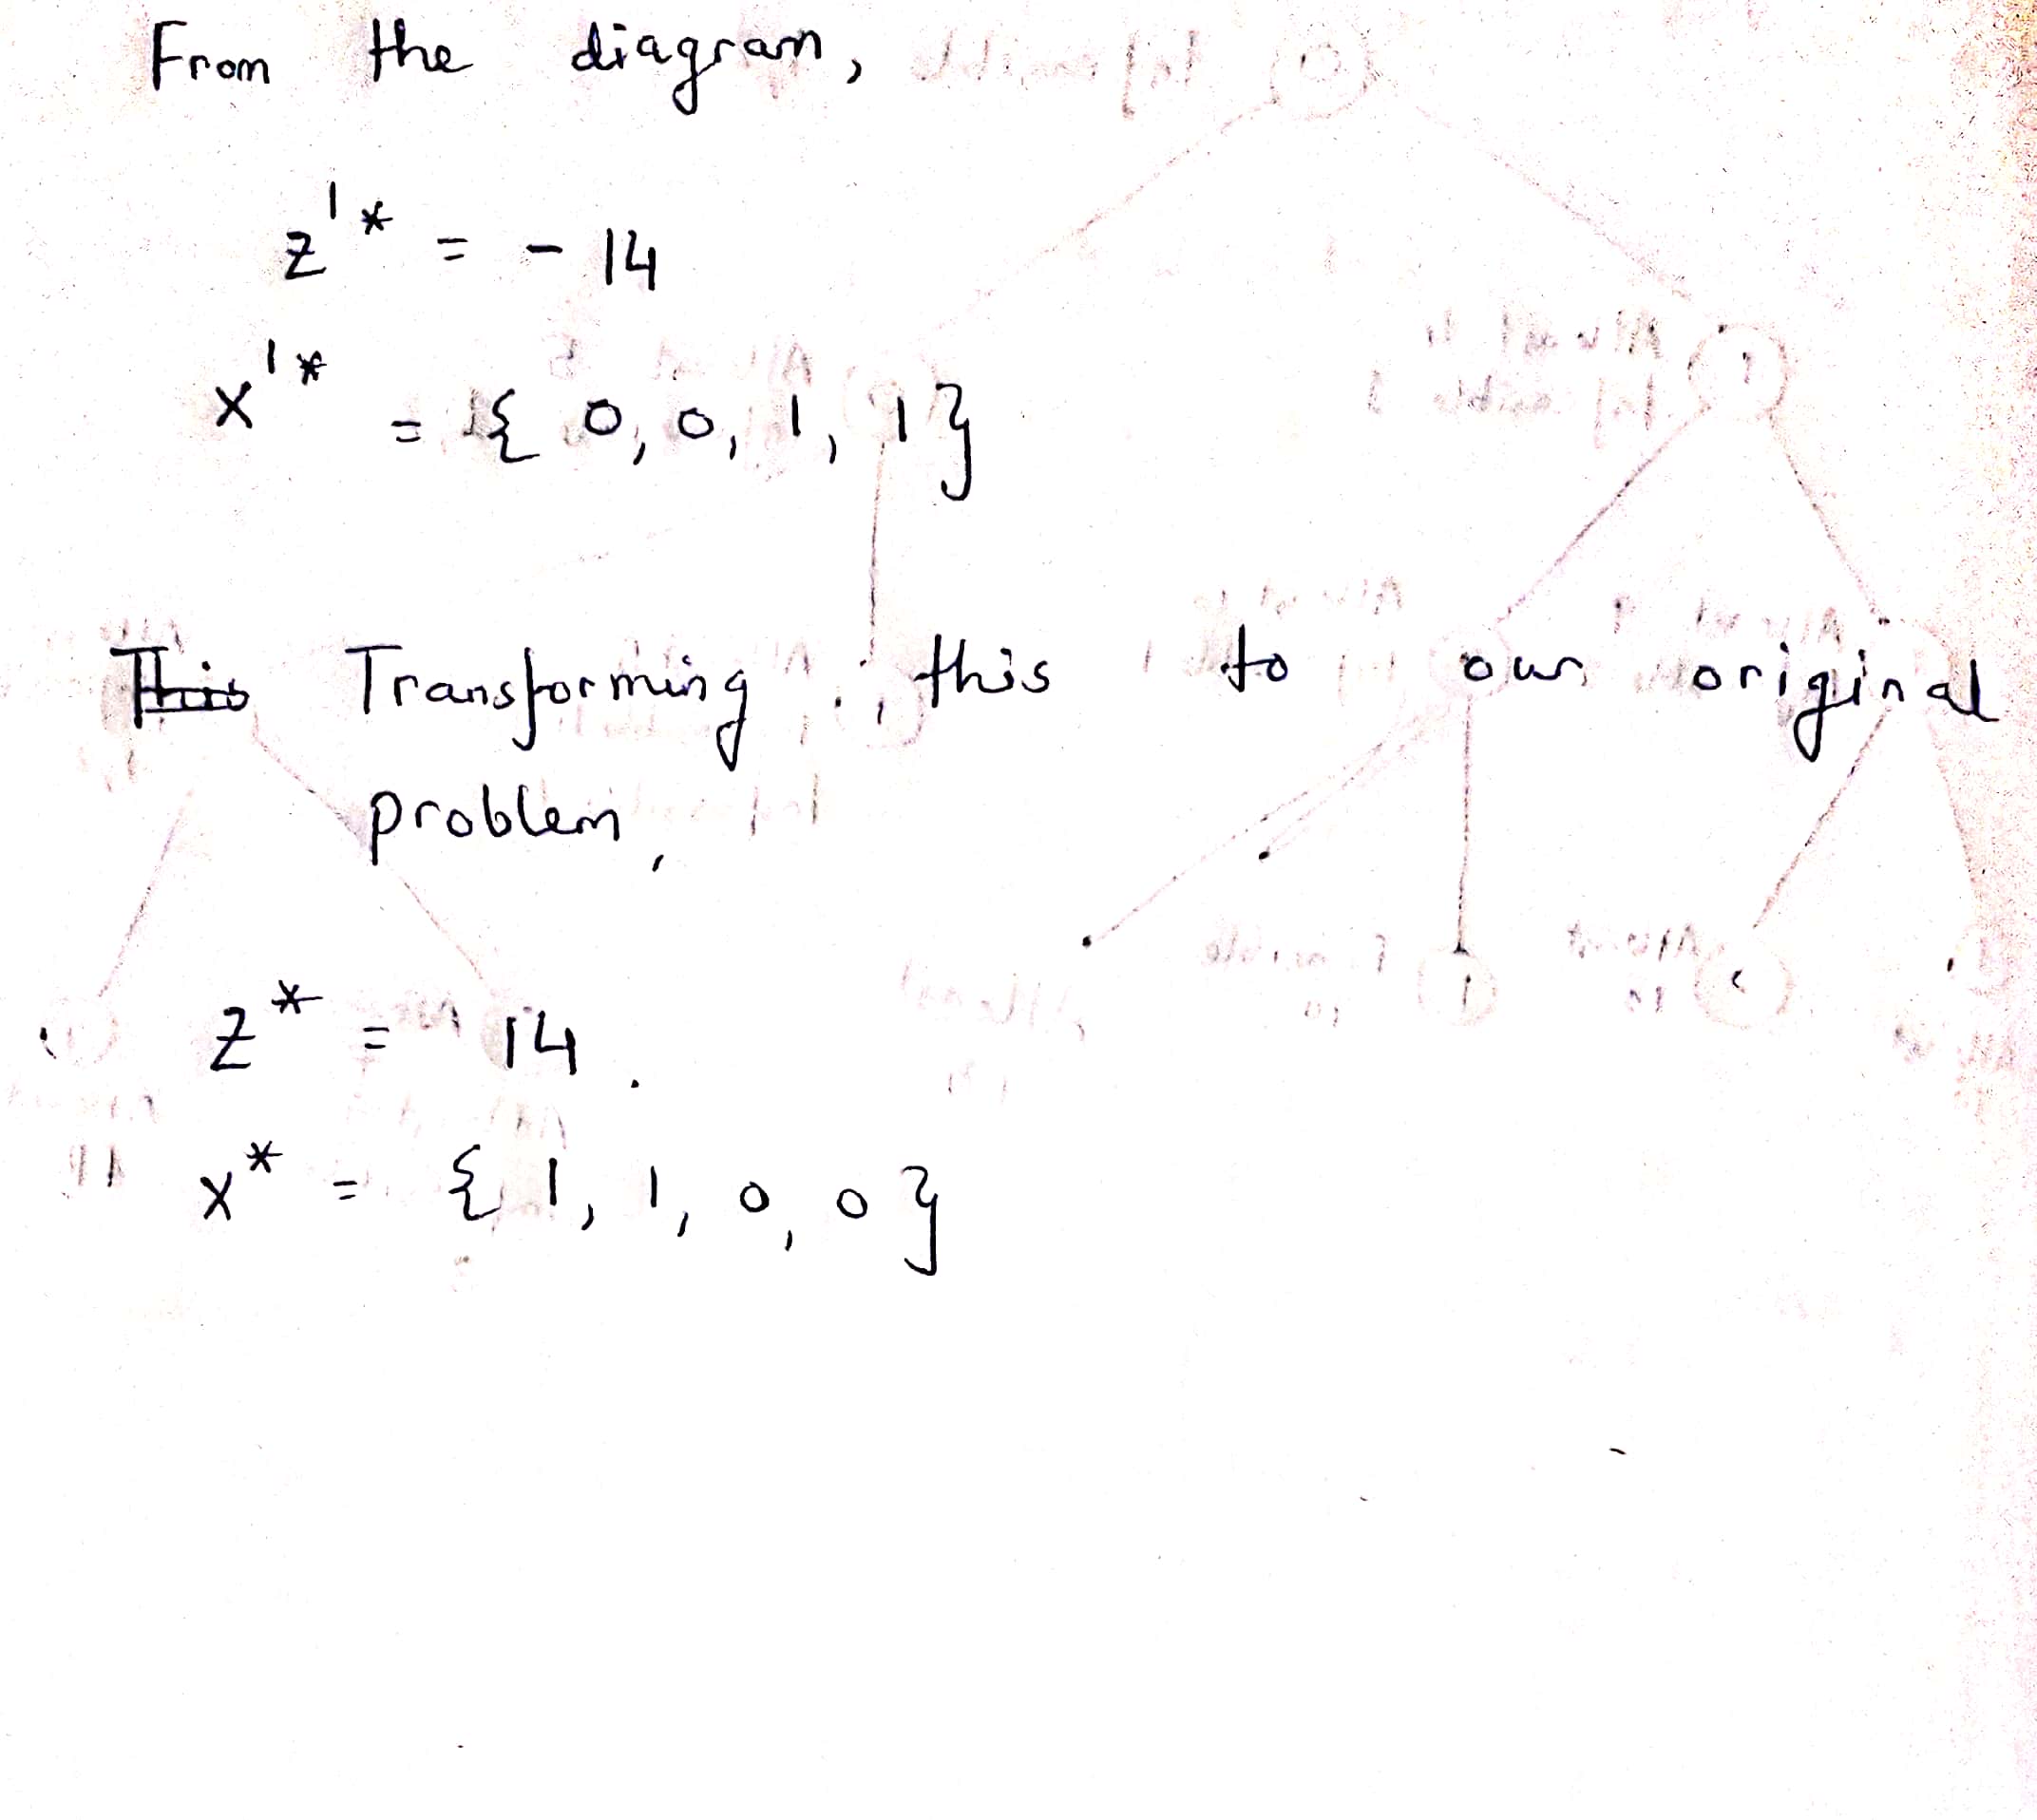 From the diagram,
z'* = - 14
x'* = { 0, 0, 1, 1}
This Transforming this to our original
problem,
z* = 14.
x* = { 1, 1, 0, 0}